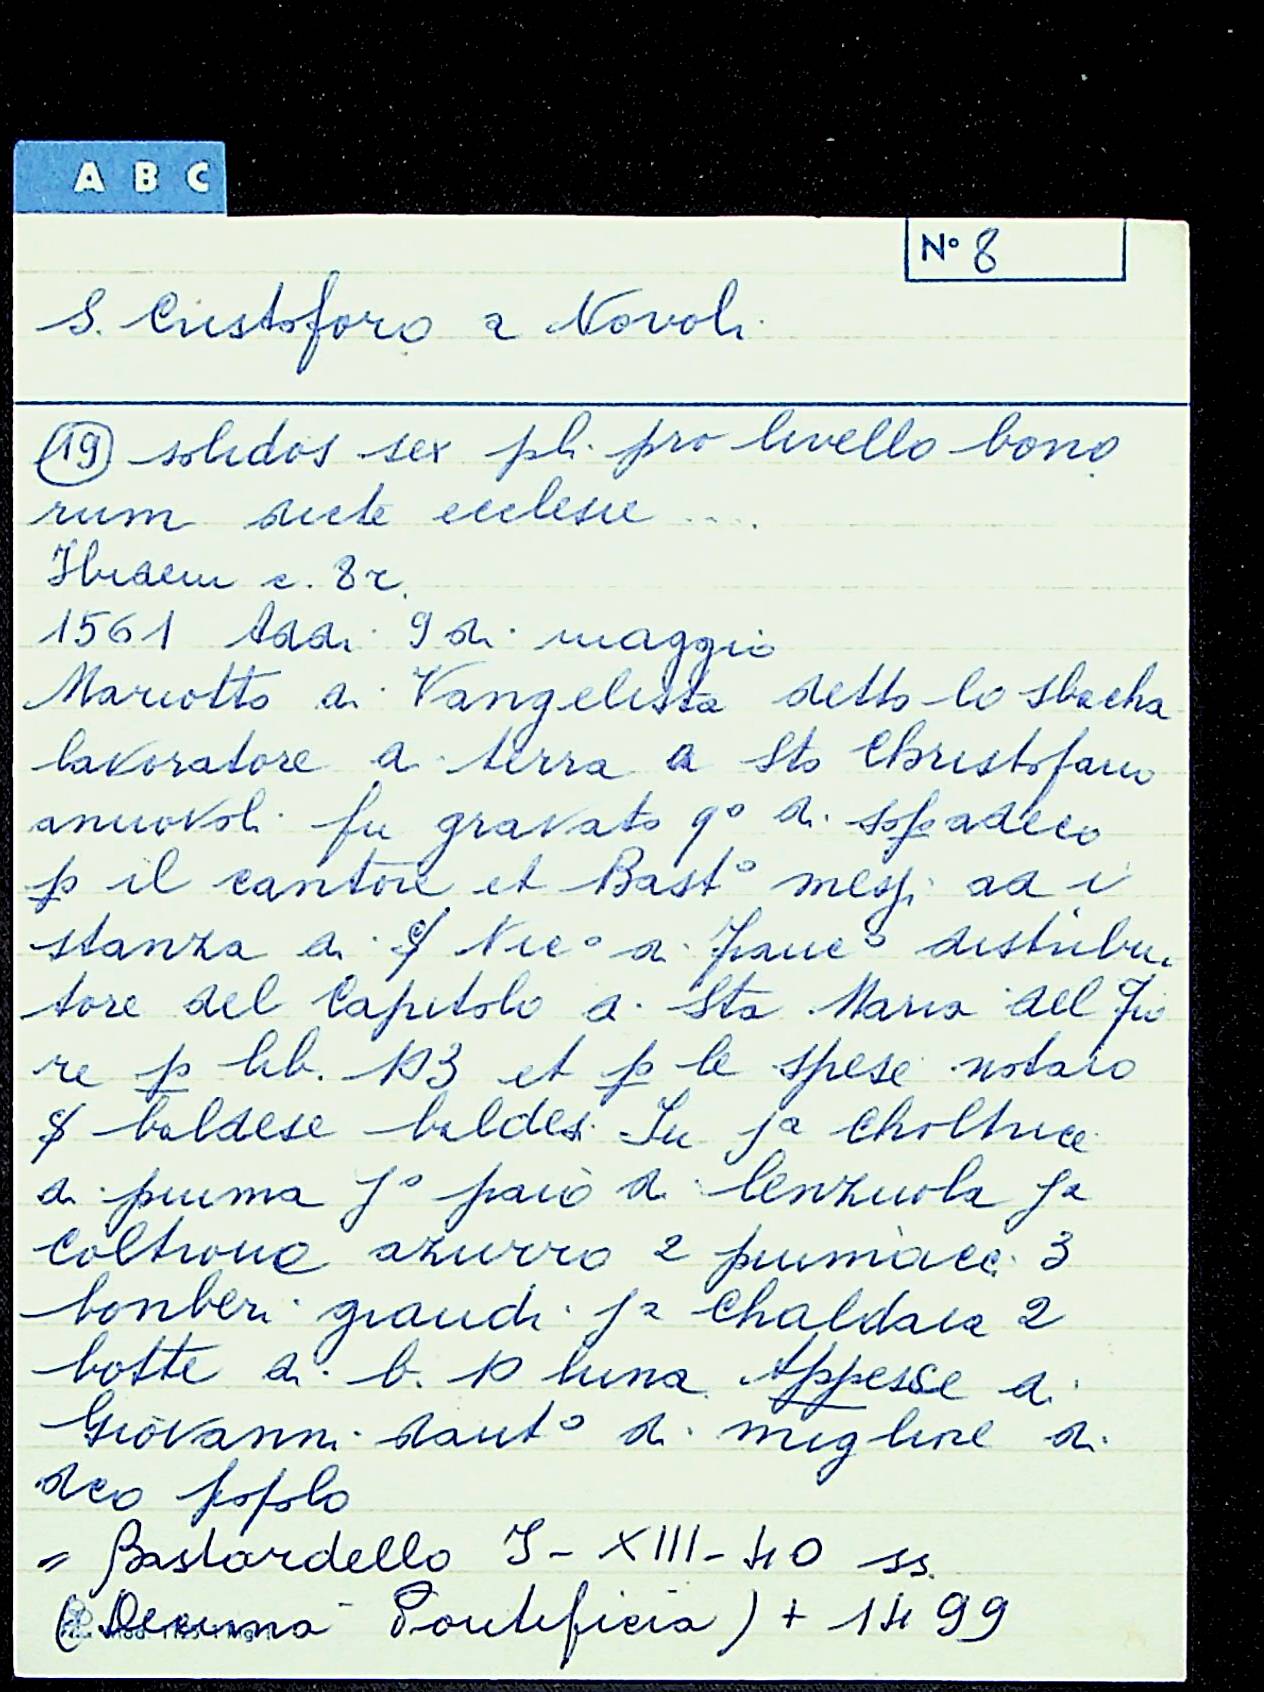 A B C
N° 8
S. Cristoforo a Novoli
(19) solidos sex pli. pro livello bono
rum dicte ecclesie ....
Ibidem c. 8r.
1561 Addi 9 di maggio
Mariotto di Vangelista detto lo sbacha
lavoratore di terra a Sto Christofano
annovoli fu gravato q° di sopradeco
p il cantore et Bast° messi ad i
stanza di Nic° di Franc° distribu
tore del Capitolo di Sta Maria del Fio
re p lib. 103 et p le spese notaio
baldese baldesi In ja choltrice
di piuma j° paio di lenzuola ja
coltrone azurro 2 piumacci 3
bonberi grandi ja chaldaia 2
botte di b. 10 luna. Appresse di
Giovanni dant° di migliore di
dco popolo
= Bastardello I - XIII - 40 ss.
(Decima Pontificia) + 1499